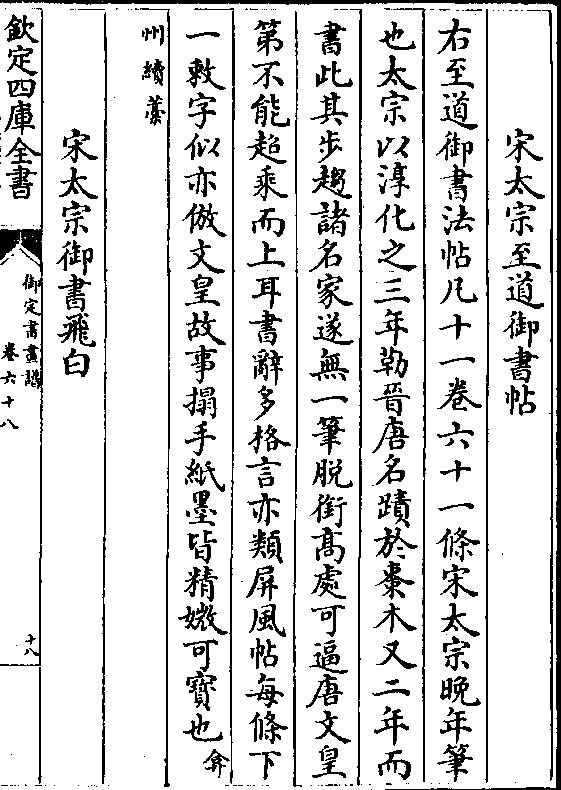 宋太宗至道御書帖
右至道御書法帖凡十一卷六十一條宋太宗晚年筆
也太宗以淳化之三年勒晉唐名蹟於棗木又二年而
書此其步趨諸名家遂無一筆脫銜高處可逼唐文皇
第不能超乘而上耳書辭多格言亦類屏風帖每條下
一敕字似亦倣文皇故事搨手紙墨皆精媺可寶也弇
州續藁
宋太宗御書飛白
欽定四庫全書
御定書畫譜
卷六十八
十八